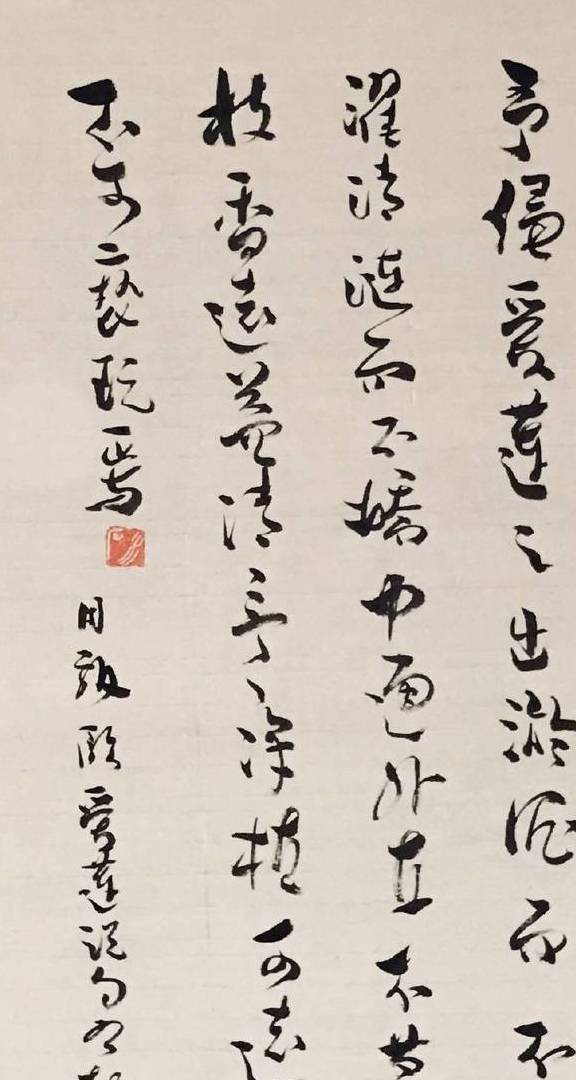 予獨愛蓮之出淤泥而不
濯清漣而不妖中通外直不蔓
枝香遠益清亭亭淨植可遠
不可褻玩焉
周敦頤愛蓮說句